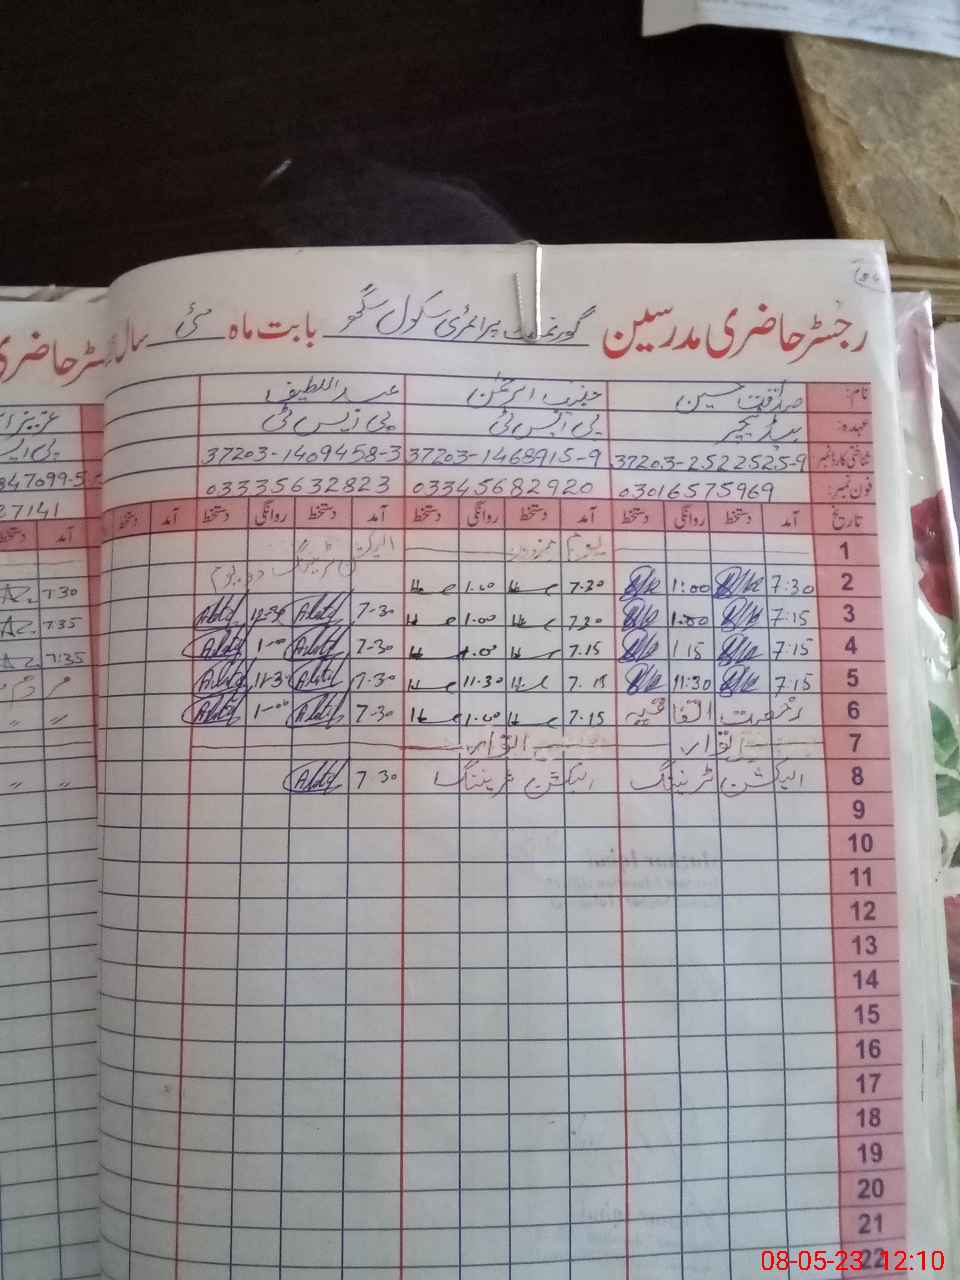 رجسٹر حاضری مدرسین گورنمنٹ پرائمری سکول سگھو بابت ماہ مئی سال
نام: صداقت حسین عبد اللطیف
عہدہ: ہیڈ ٹیچر پی ایس ٹی پی ایس ٹی
شناختی کارڈ نمبر 37203-2522525-9 37203-1468915-9 37203-1409458-3
فون نمبر: 03016575969 03345682920 03335632823
تاریخ آمد دستخط روانگی دستخط آمد دستخط روانگی دستخط آمد دستخط روانگی دستخط آمد دستخط
1 یوم مزدور الیکشن ٹریننگ دو یوم
2 7:30 1:00 7.30 1.00
3 7:15 1.00 7.30 1.00 7-30 12-30
4 7:15 1.15 7.15 1.00 7-30 1-00
5 7:15 11:30 7.15 11.30 7-30 11-30
6 رخصت اتفاقیہ 7.15 1.00 7-30 1-00
7 اتوار اتوار
8 الیکشن ٹریننگ الیکشن ٹریننگ 7-30
9
10
11
12
13
14
15
16
17
18
19
20
21
22
سٹر حاضری
عزیز
پی ایس
847099-5
37141
آمد
7:30
7:35
7:35
08-05-23 12:10